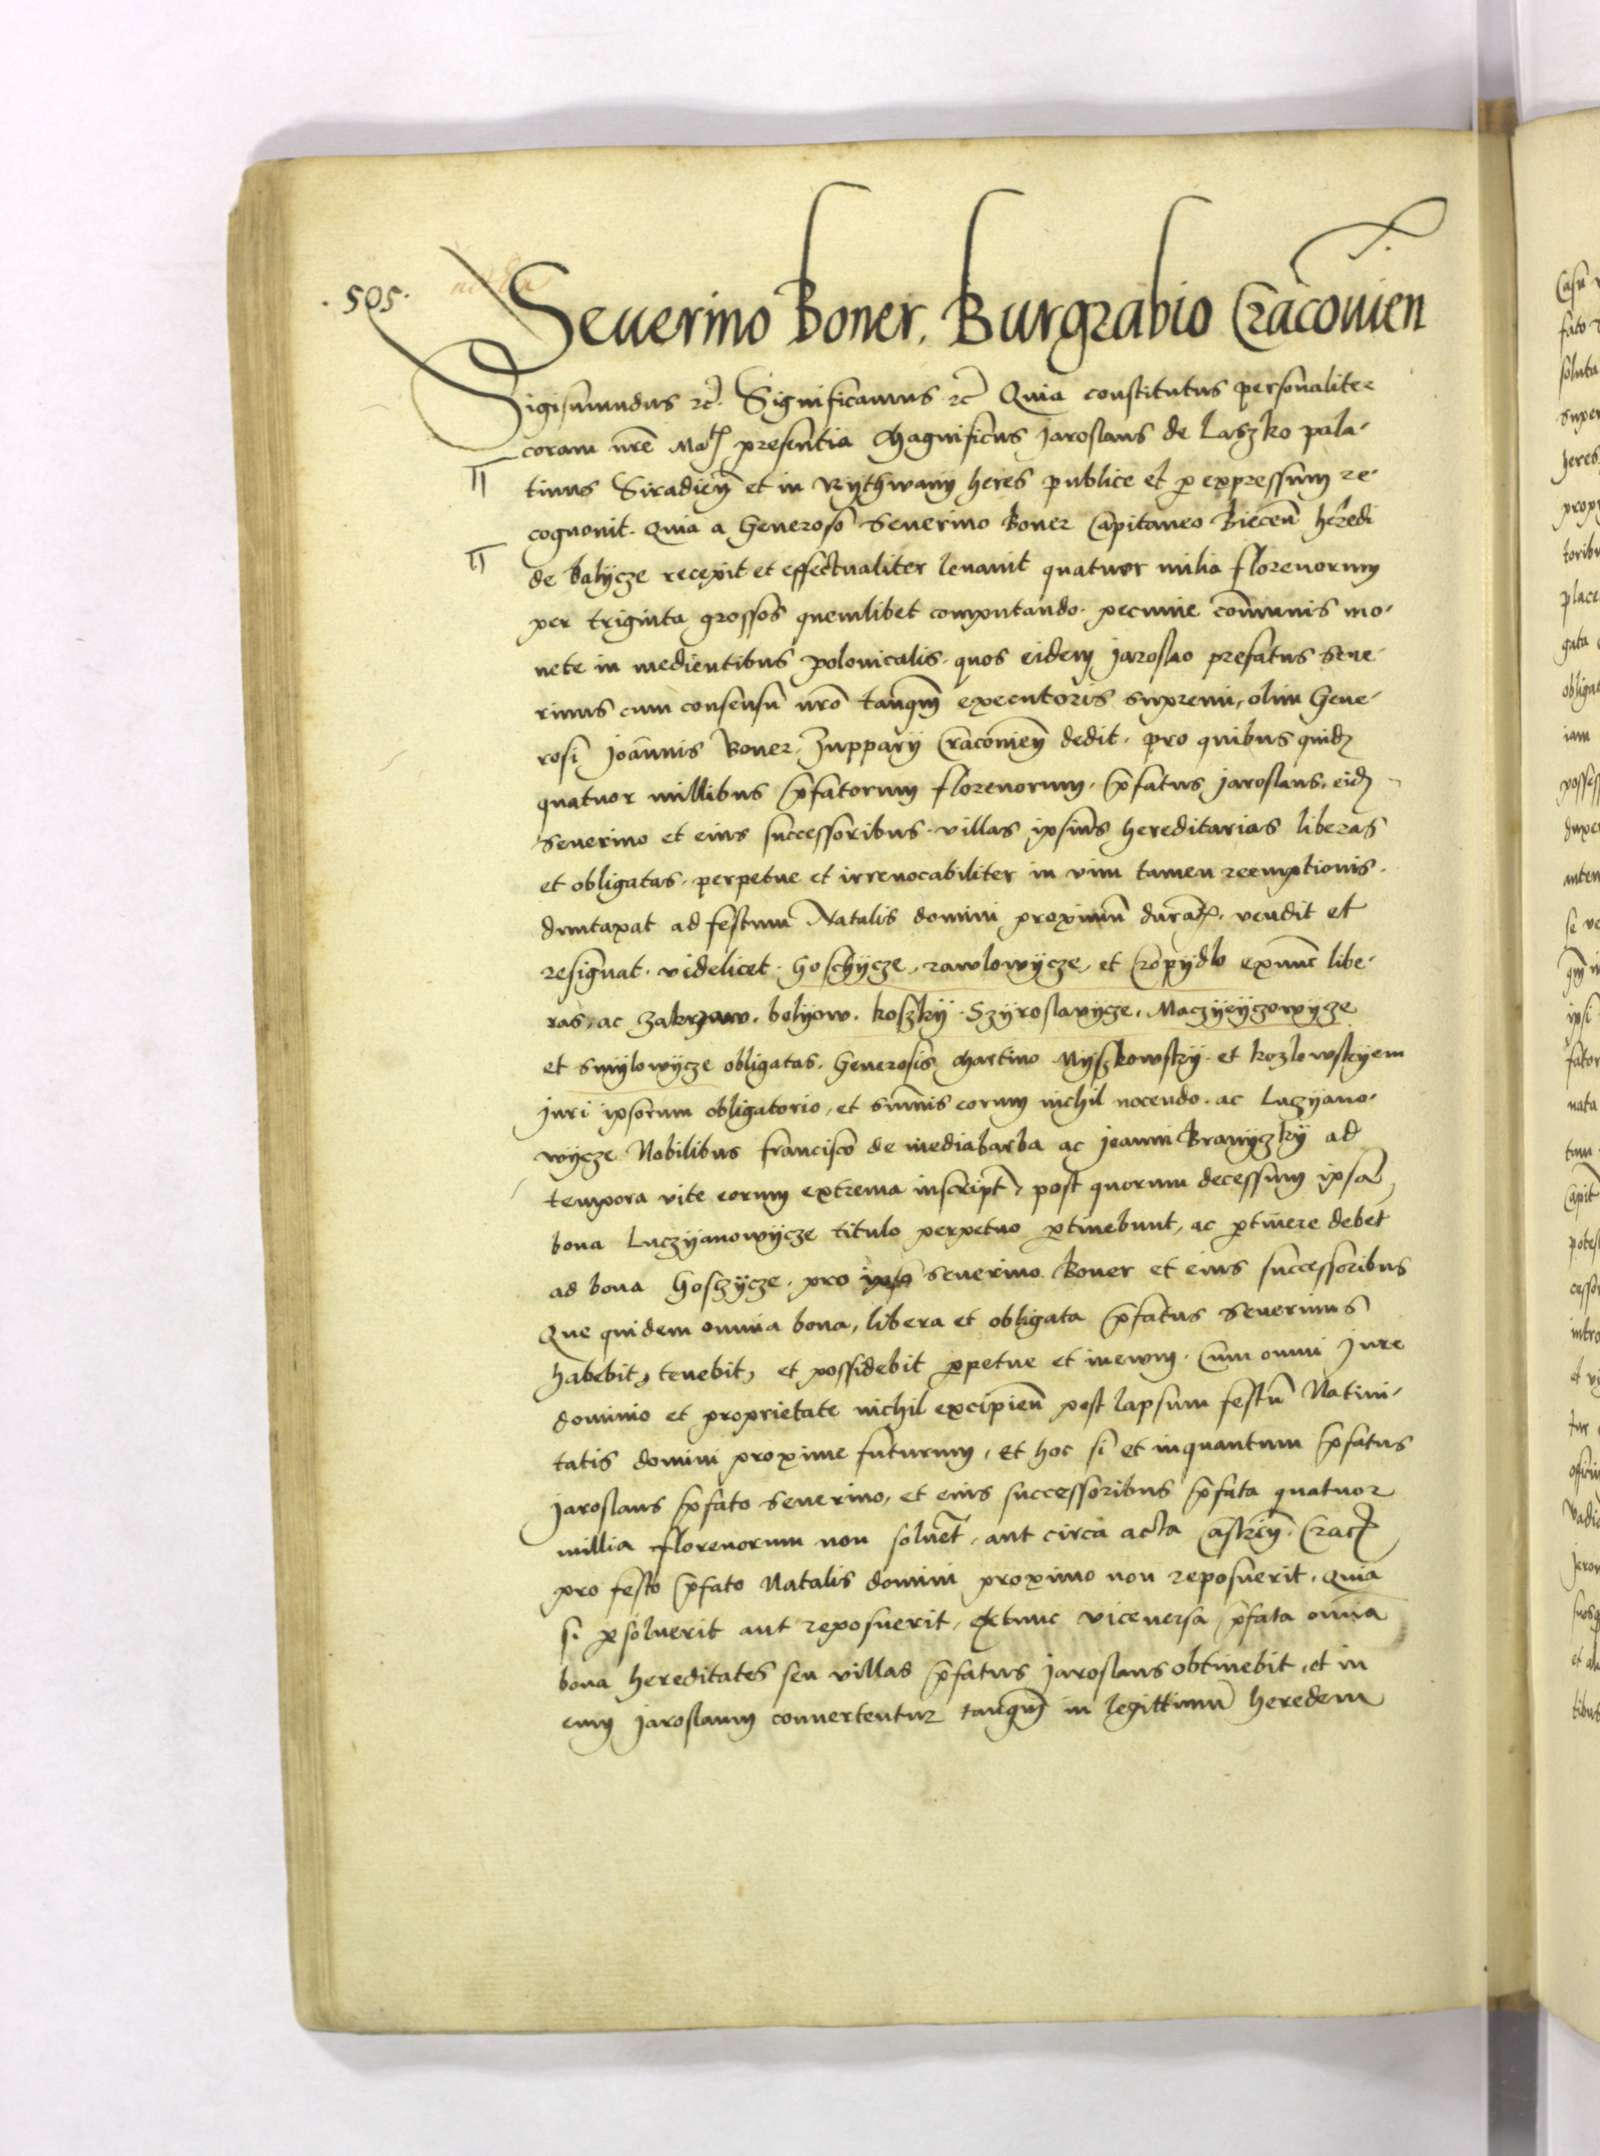 .505.
Seuerino Boner. Burgrabio Cracouien
Sigismundus rc̃. Significamus rc̃ Quia constitutus personaliter
coram nr̃e Matis presentia Magnificus Jaroslaus de Laszko pala-
tinus Siradieñ et in Rythwany heres publice et ꝑ expressum re-
cognouit. Quia a Generoso Seuerino Boner Capitaneo Bieceñ heredi
de balycze recepit et effectualiter leuauit quatuor milia florenorum
per triginta grossos quemlibet computando. pecunie com̃unis mo-
nete in medientibus polonicalis. quos eidem Jaroslao prefatus Seue-
rinus cum consensu nr̃o tanq̃m executoris supremi, olim Gene-
rosi Joannis Boner, Zupparij Cracouieñ dedit. pro quibus quidẽ
quatuor millibus p̃fatorum florenorum. p̃fatus Jaroslaus, eidẽ
Seuerino et eius successoribus villas ipsius hereditarias liberas
et obligatas. perpetue et irreuocabiliter in vim tamen reemptionis.
duntaxat ad festum Natalis domini proximũ duratẽ. vendit et
resignat. videlicet. Goschycze, rawlowycze, et Cropydlo exnunc libe-
ras, ac Zakrzaw. belyow. koszky. Szyroslawycze. Maczyeyczowycze
et Smylowycze obligatas. Generosis Martino Myszkowsky. et kozlowskyem
Juri ipsorum obligatorio, et sum̃is eorum nichil nocendo. ac Luczyano-
wycze Nobilibus francisco de mediabarba ac Joanni Branyczky ad
tempora vite eorum extrema inscript, post quorum decessum ipsa
bona Luczyanowycze titulo perpetuo ꝑtinebunt, ac ꝑtinere debet
ad bona Goszycze. pro Seuerino Boner et eius successoribus
Que quidem omnia bona, libera et obligata p̃fatus Seuerinus
habebit, tenebit, et possidebit ꝑpetue et ineuum. Cum omni Jure
dominio et proprietate nichil excipieñ post lapsum festũ Natiui-
tatis domini proxime futurum, Et hoc si et inquantum p̃fatus
Jaroslaus p̃fato Seuerino, et eius successoribus p̃fata quatuor
millia florenorum non soluet, aut circa acta Castreñ. Cracꝭ
pro festo p̃fato Natalis domini proximo non reposuerit. Quia
si ꝑsoluerit aut reposuerit, extunc viceuersa p̃fata omnia
bona hereditates seu villas p̃fatus Jaroslaus obtinebit, et in
eum Jaroslaum conuertentur tanq̃m in legittimũ heredem